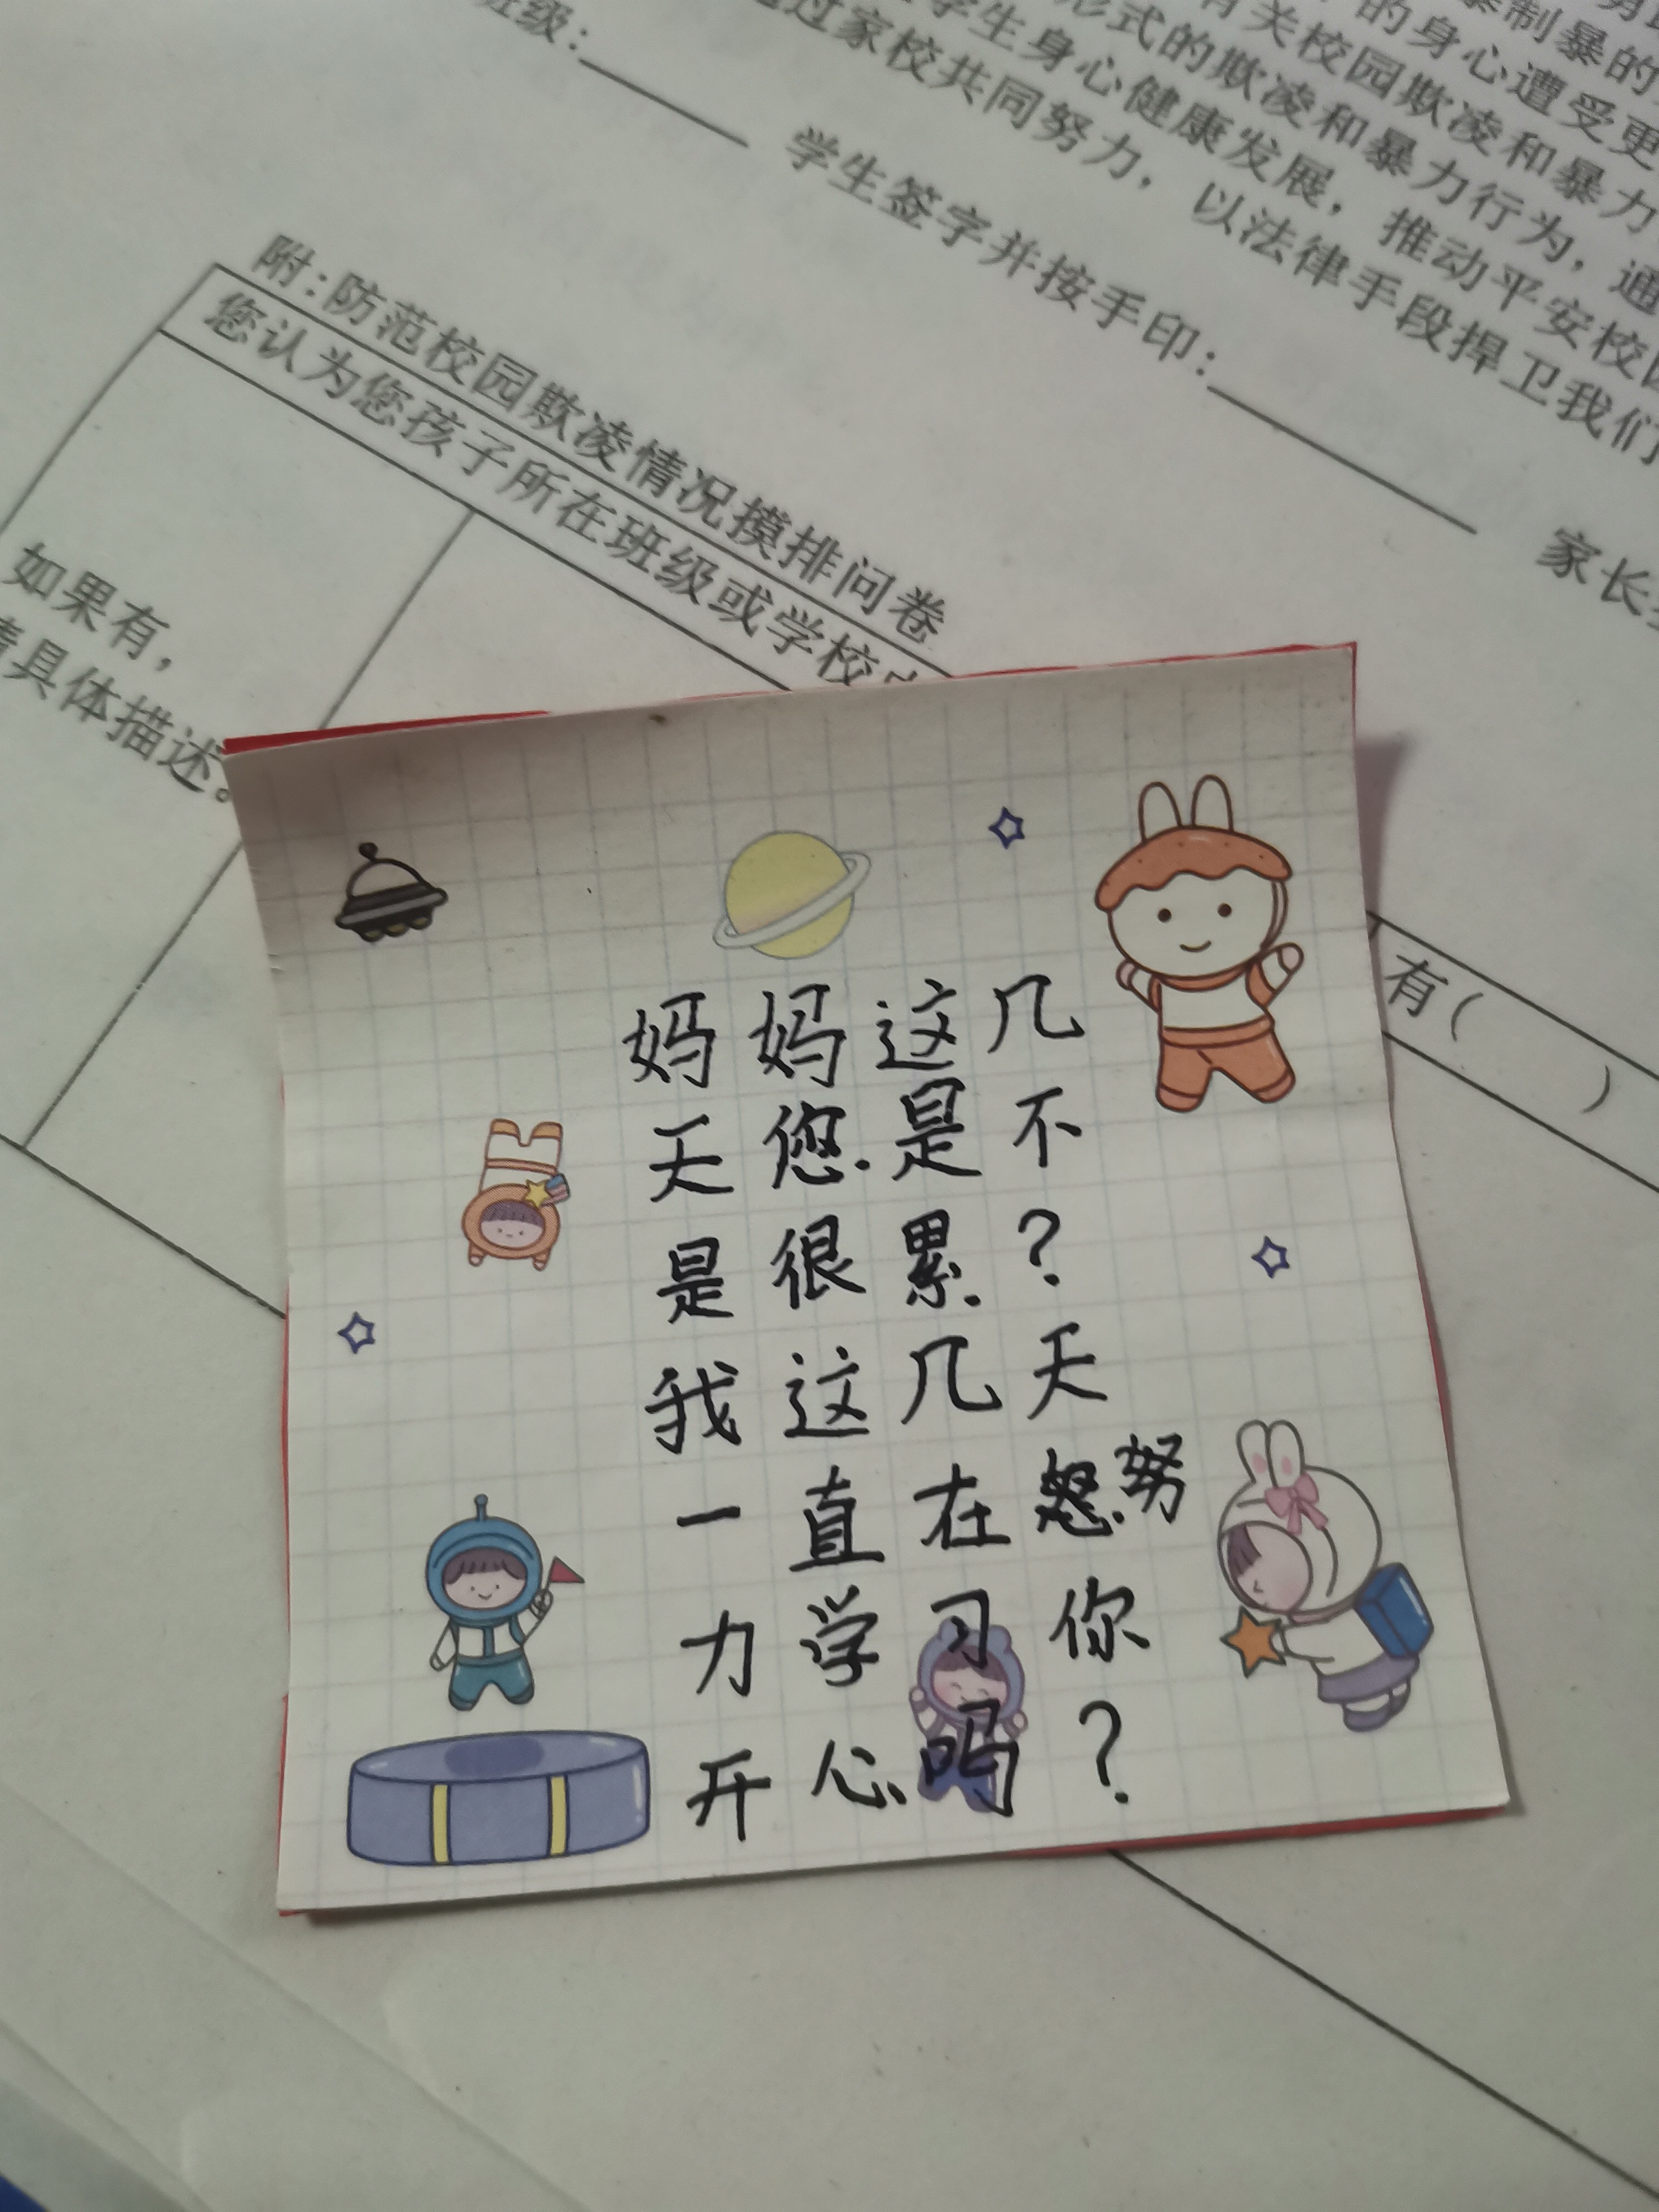 附:防范校园欺凌情况摸排问卷
您认为您孩子所在班级或学校
如果有，
具体描述。
有（ ）
学生签字并按手印:
家长
级:
过家校共同努力，以法律手段捍卫我们
学生身心健康发展，推动平安校园
形式的欺凌和暴力行为，通
有关校园欺凌和暴力
的身心遭受更
制暴的
妈妈这几
天您是不
是很累?
我这几天
一直在努
力学习你
开心吗?